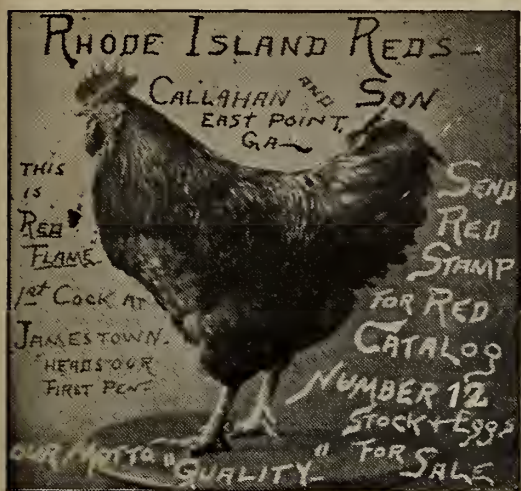 RHODE ISLAND REDS-
CALLAHAN AND SON
EAST POINT,
GA-
THIS
IS
RED
FLAME
1st COCK AT
JAMESTOWN-
HEADS OUR
FIRST PEN-
SEND
RED
STAMP
FOR RED
CATALOG
NUMBER 12
STOCK + EGGS
FOR SALE
OUR MOTTO "QUALITY-"